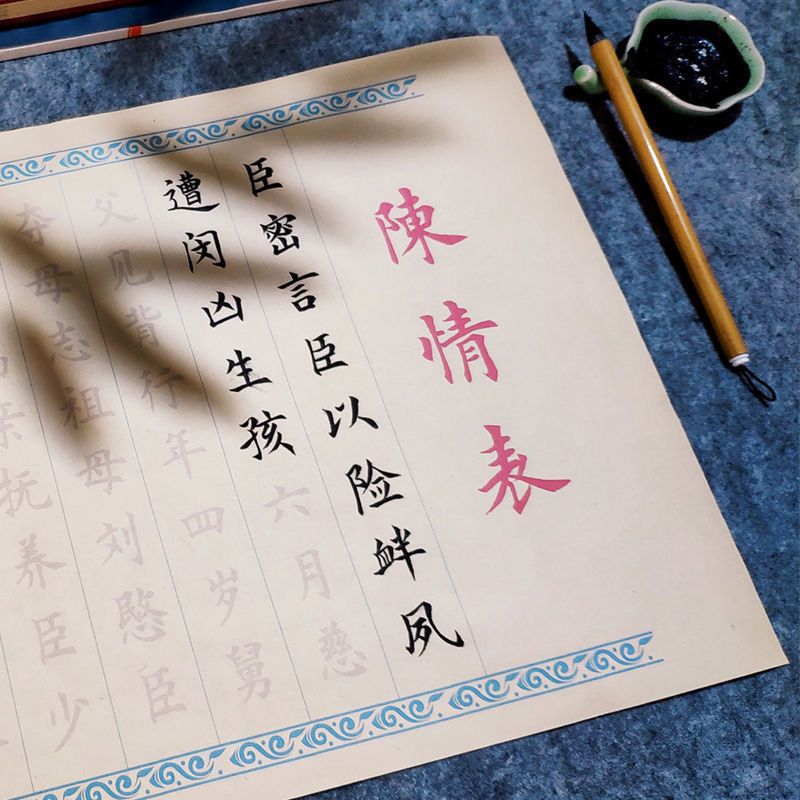 陳情表
臣密言臣以险衅夙
遭闵凶生孩六月慈
父见背行年四岁舅
夺母志祖母刘愍臣
亲抚养臣少